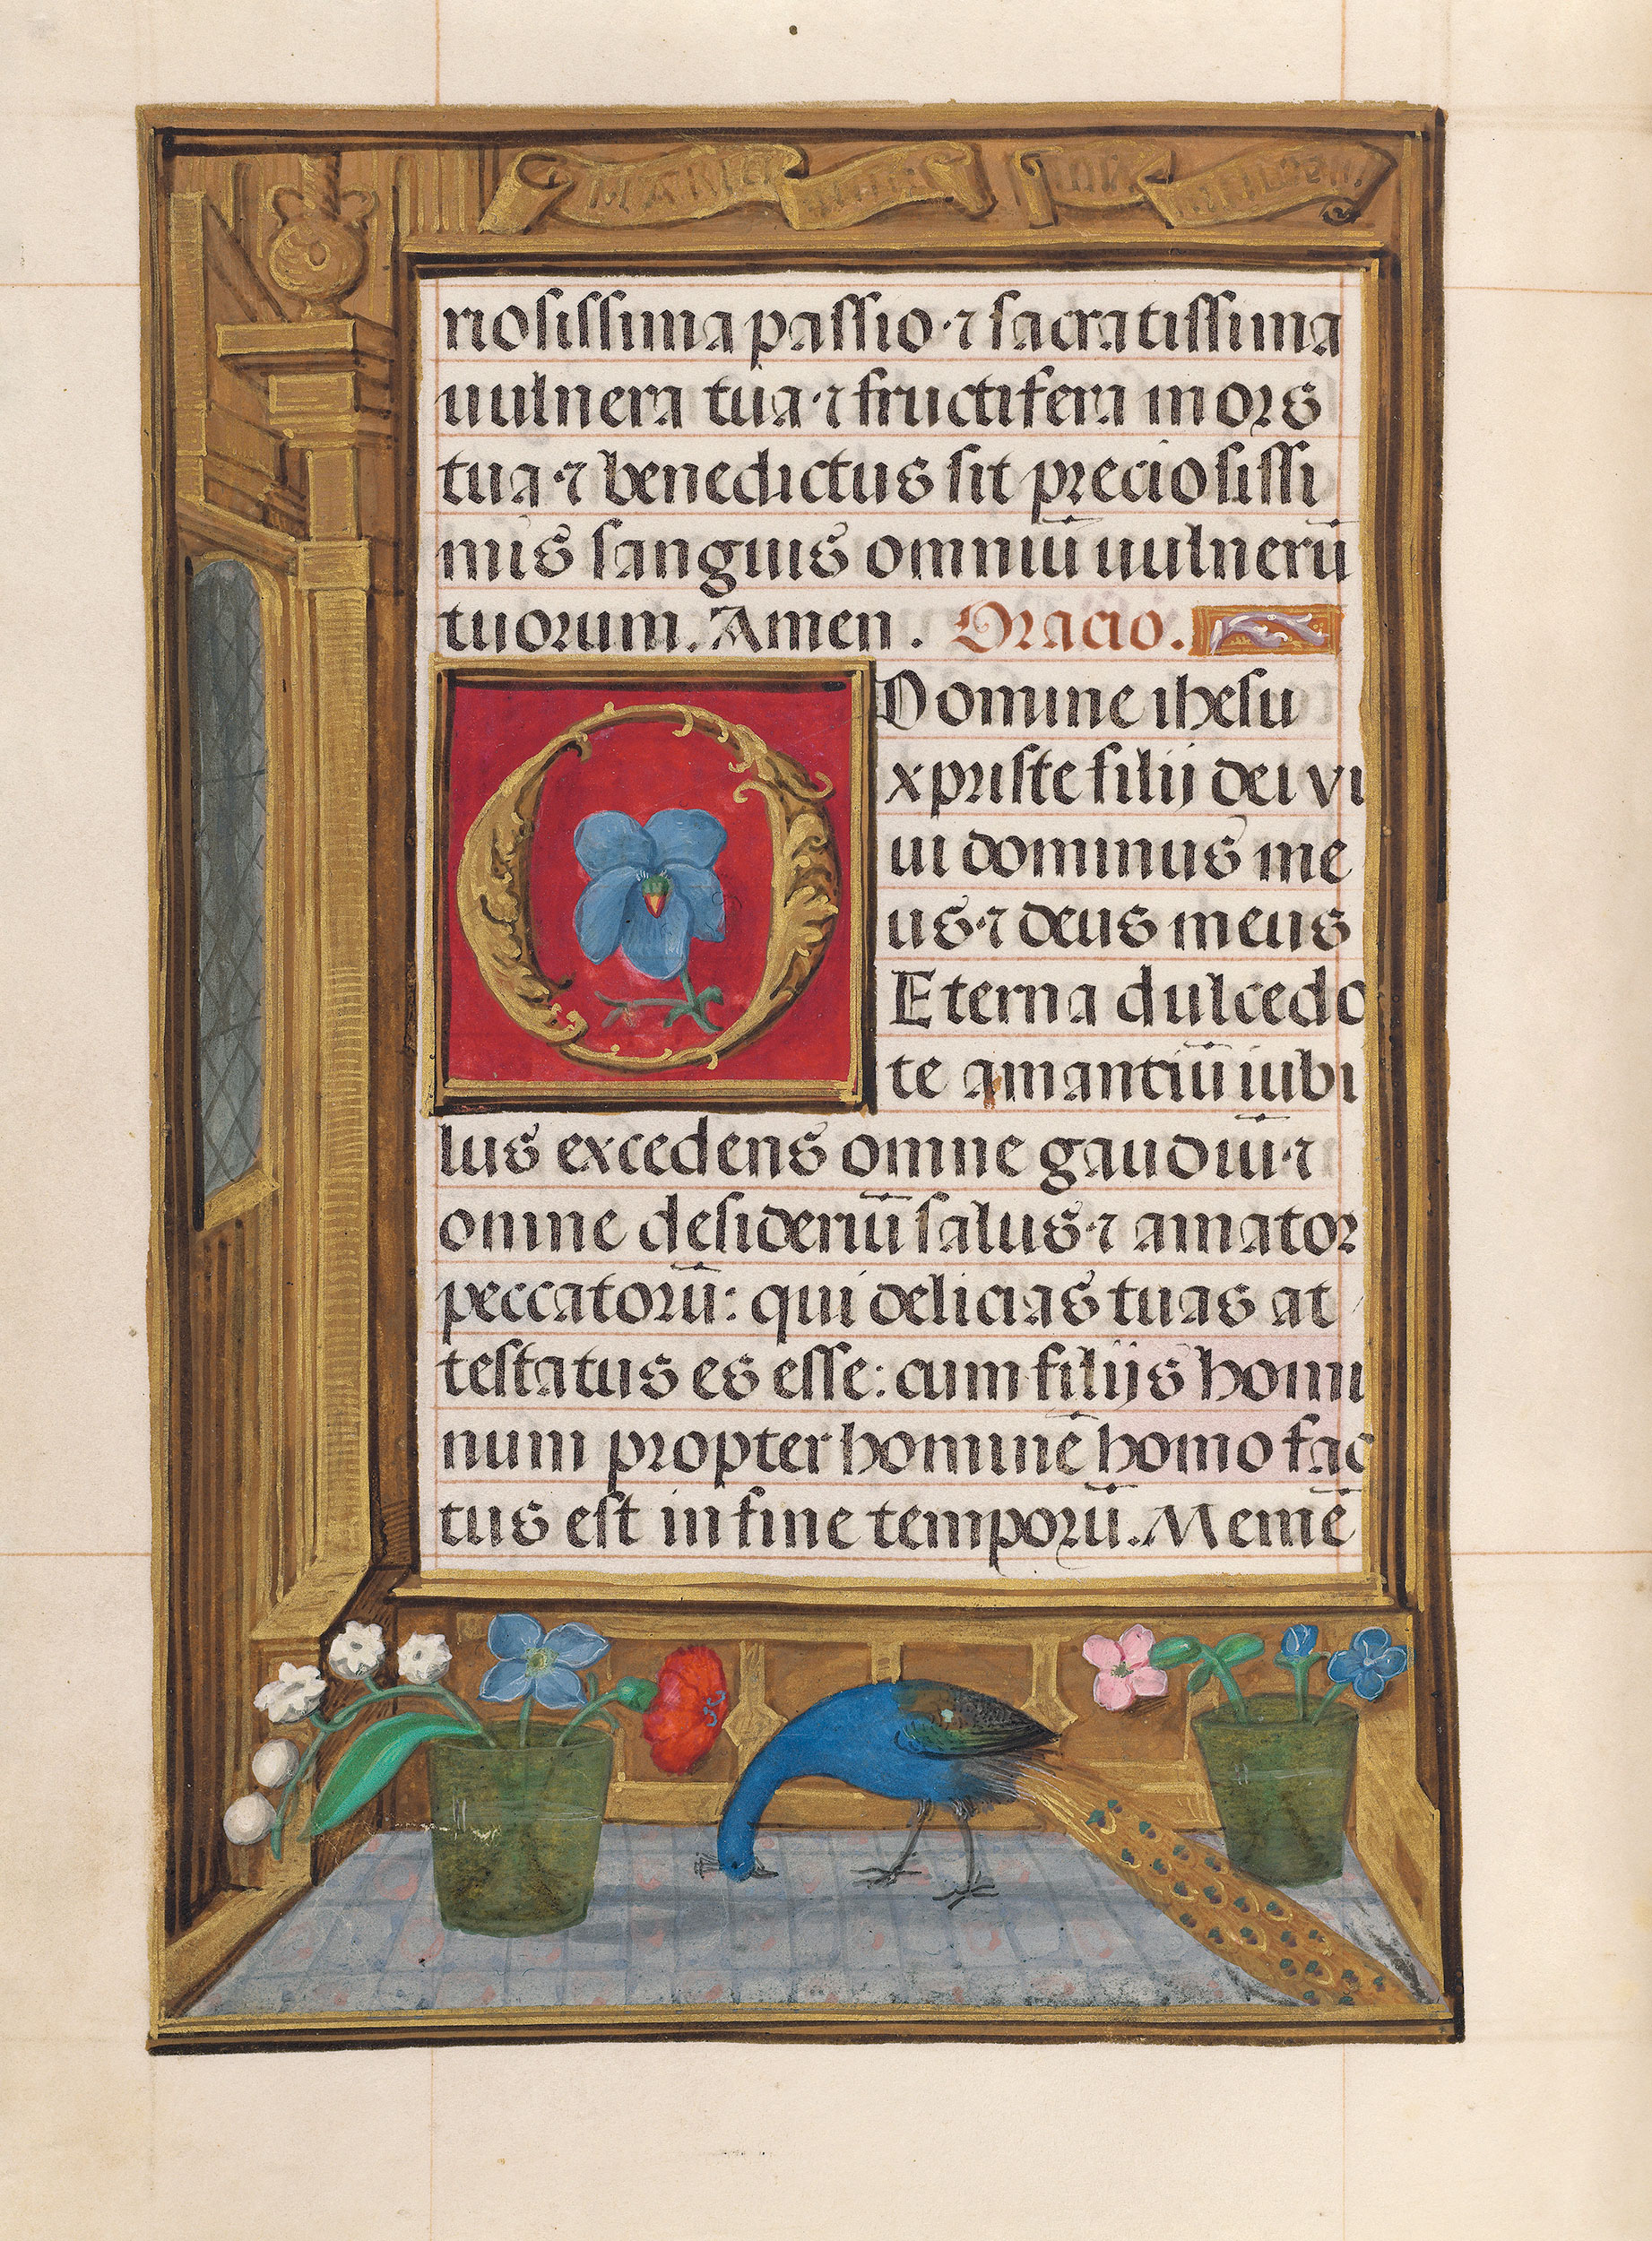 riosissima passio·⁊ sacratissima
uulnera tua·⁊ fructifera mors
tua·⁊ benedictus sit preciosissi
mus sanguis omniū uulnerū
tuorum. Amen. Oracio.
O Domine ihesu
xpriste filij dei vi
ui dominus me
us·⁊ deus meus
Eterna dulcedo
te amantiū iubi
lus excedens omne gaudiū·⁊
omne desideriū salus·⁊ amator
peccatorū: qui delicias tuas at
testatus es esse: cum filijs homi
num propter hominē homo fac
tus est in fine temporū. Memē